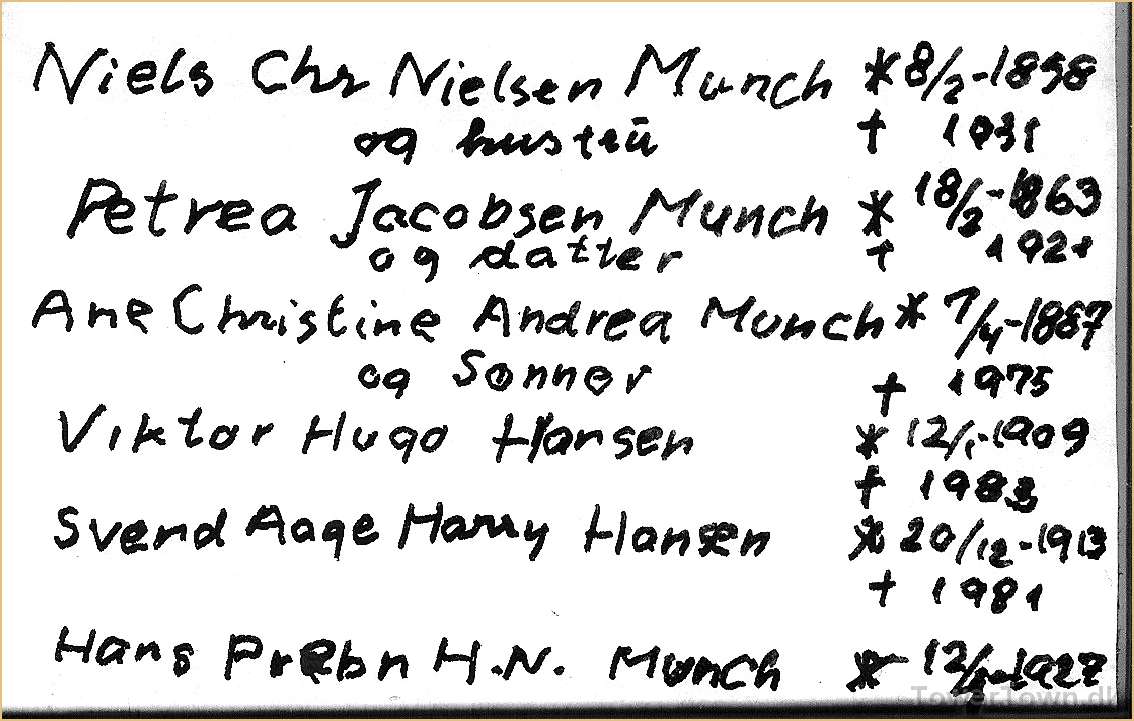 Niels Chr Nielsen Munch * 8/2-1858
og hustrū † 1931
Petrea Jacobsen Munch * 18/2-1863
og datter † 1921
Ane Christine Andrea Munch * 7/4-1887
og Sønner † 1975
Viktor Hugo Hansen * 12/1-1909
† 1983
Svend Aage Harry Hansen * 20/12-1913
† 1981
Hans Prebn H.N. Munch *
TowerTown.dk